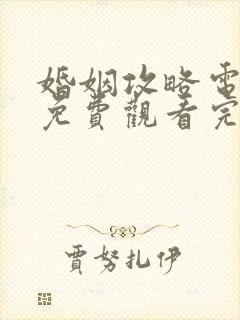 婚姻攻略電
免費觀看完
賈努扎伊